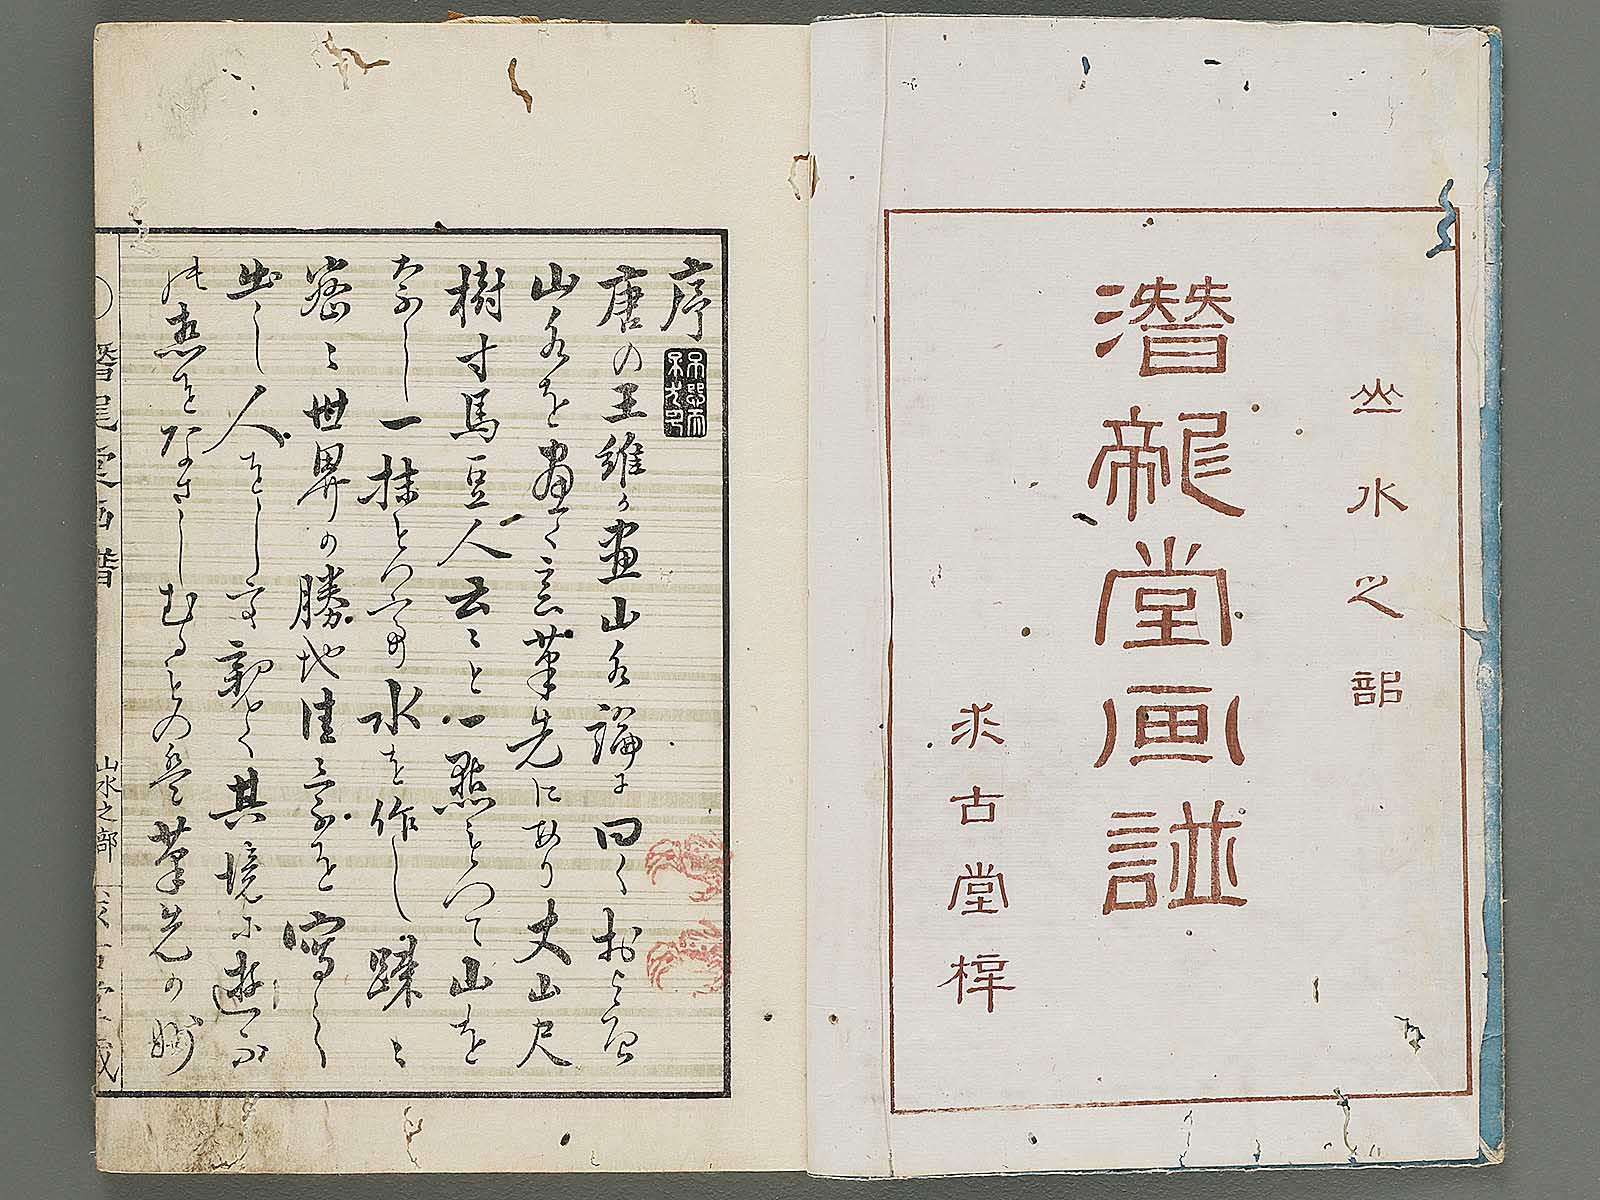 山水之部
潜龍堂画譜
求古堂梓
序
唐の王維か画山水論に曰くおよそ
山水を画く意筆先にあり丈山尺
樹寸馬豆人云々と一點をもつて山を
なし一抹をつて水を作し
密々世界の勝地佳景を寫し
出し人をして親しく其境に遊
筆先の妙
潜龍堂画譜
山水之部
求古堂蔵